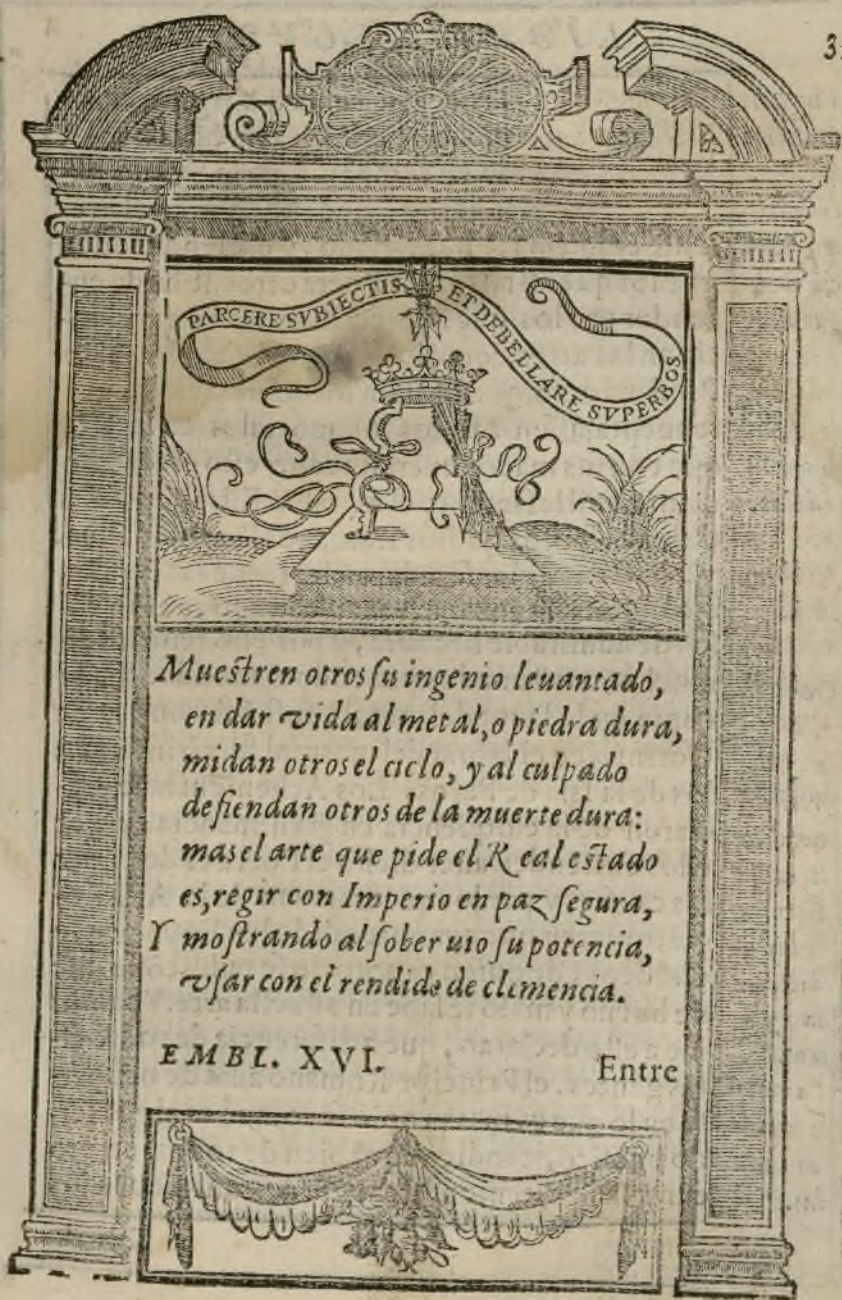 PARCERE SVBIECTIS ET DEBELLARE SVPERBOS
Mueſtren otros ſu ingenio leuantado,
en dar vida al metal, o piedra dura,
midan otros el cielo, y al culpado
defiendan otros de la muerte dura:
mas el arte que pide el Real eſtado
es, regir con Imperio en paz ſegura,
Y moſtrando al ſoberuio ſu potencia,
vſar con el rendido de clemencia.
EMBL. XVI.
Entre